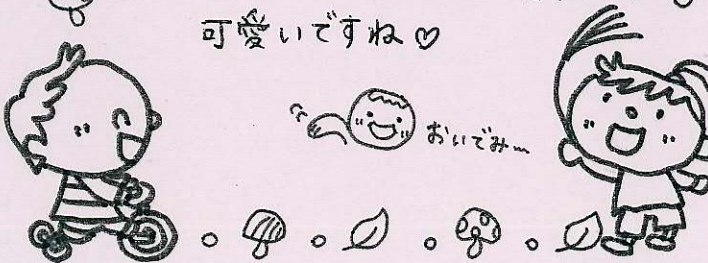 可愛いですね♡
おいでみ〜